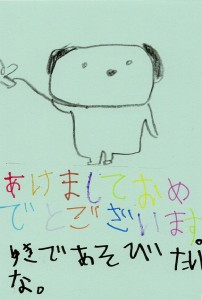 あけましておめ
でとございます。
ゆきであそびたい
な。